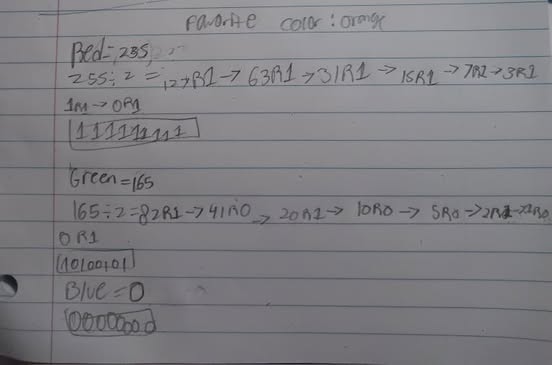 Favorite color: orange
Red=, 235,
255÷2 = 127R1 → 63R1 → 31R1 → 15R1 → 7R1 → 3R1
1R1 → 0R1
11111111
Green=165
165÷2=82R1 → 41R0 → 20R1 → 10R0 → 5R0 → 2R1 → 1R0
0R1
10100101
Blue=0
00000000